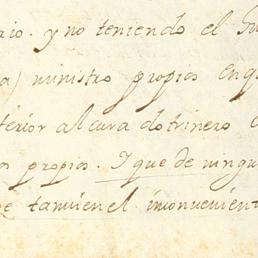 rio. y no teniendo el Su
a) ministro propios en q
terior al cura dotrinero
os propios. I que de ningu
e tanuien el inconuenient